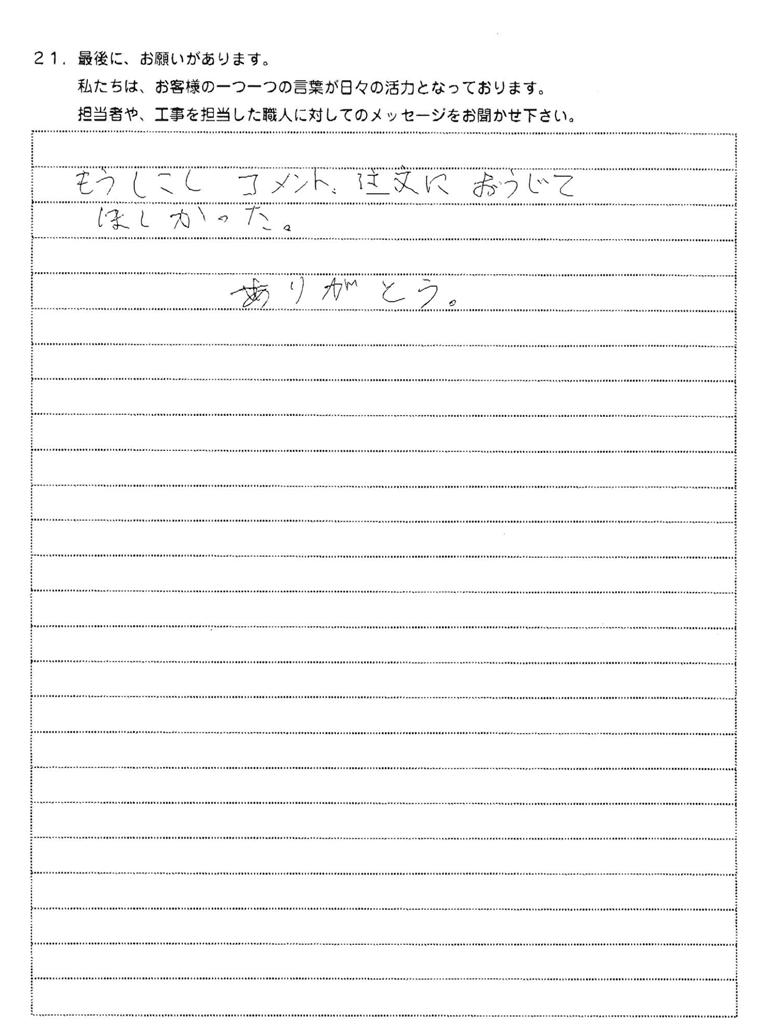 21. 最後に、お願いがあります。
私たちは、お客様の一つ一つの言葉が日々の活力となっております。
担当者や、工事を担当した職人に対してのメッセージをお聞かせ下さい。
もうしこし コメント、注文に おうじて
ほしかった。
ありがとう。